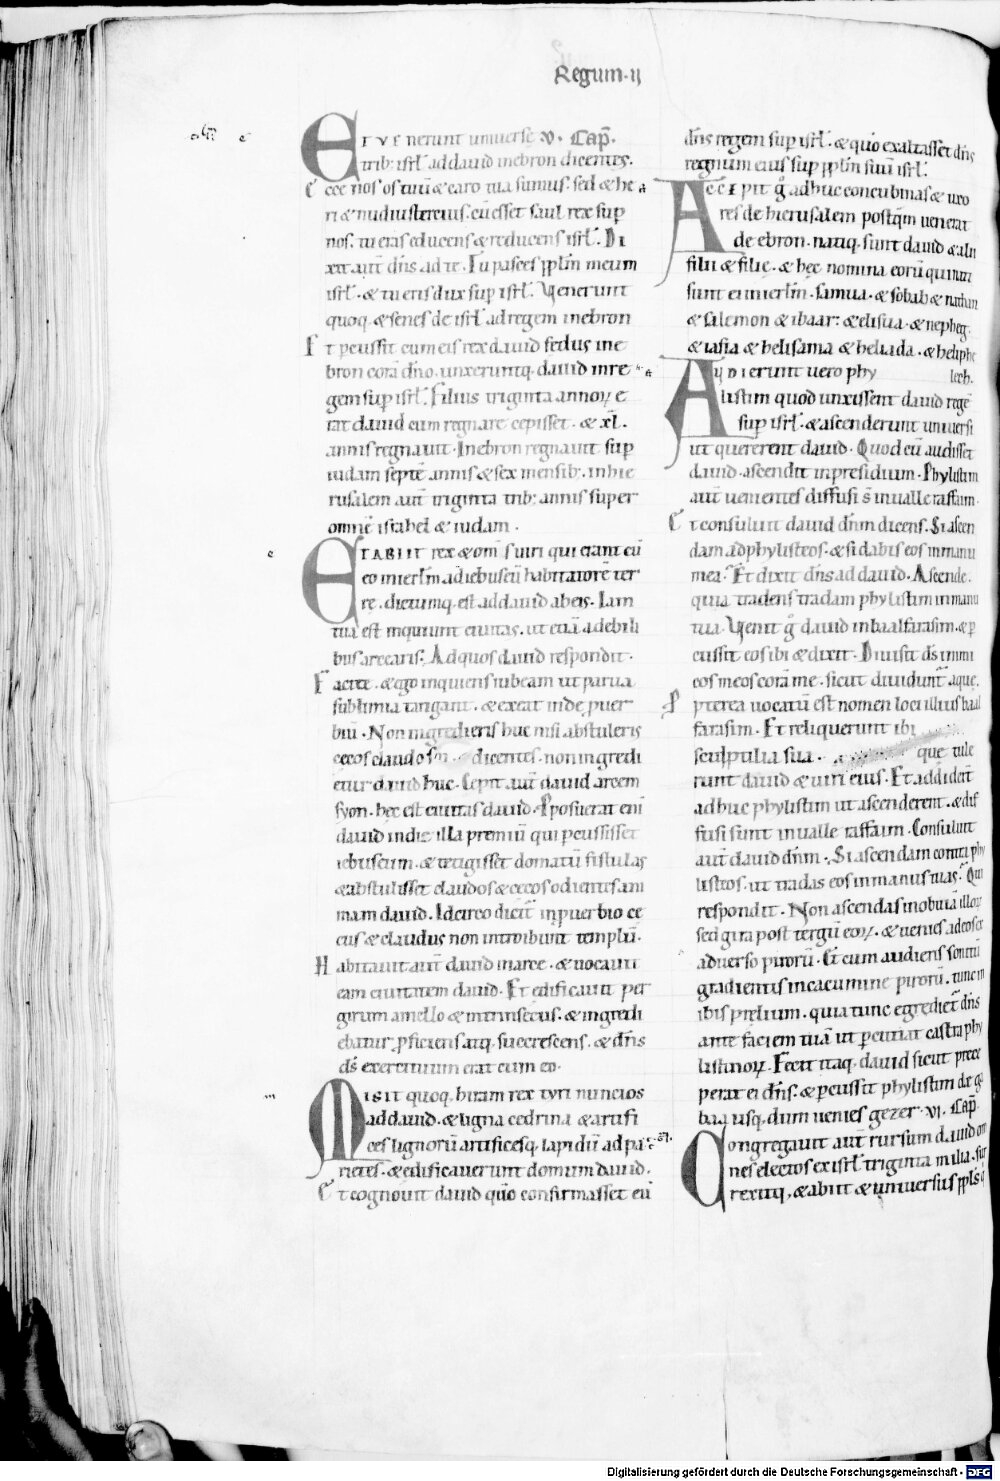 Regum · ij
ET VENerunt universe v · Cap̄.
trib; isrl̄ ad david in ebron dicentes.
Ecce nos os tuū & caro tua sumus. sed & he
ri & nudiustercius. cū esset saul rex sup̄
nos. tu eras educens & reducens isrl̄. Di
xit aut̄ dn̄s ad te. Tu pasces ppl̄m meum
isrl̄. & tu eris dux sup̄ isrl̄. Venerunt
quoq. & senes de isrl̄ ad regem in ebron
Et pcussit cum eis rex david fedus in e
bron corā dn̄o. unxeruntq. david in re
gem sup̄ isrl̄. Filius triginta annoꝝ e
rat david cum regnare cepisset. & xl.
annis regnavit. In ebron regnavit sup̄
iudam septē annis & sex mensib; in hie
rusalem aut̄ triginta trib; annis super
omnē israhel & iudam.
ET ABIIT rex & om̄s viri qui erant cū
eo in ierl̄m ad iebuseū habitatorē ter
re. dictumq. est ad david ab eis. Tam
tuta est inquiunt civitas. ut etiā a debili
bus arceatis. Ad quos david respondit.
Facite. & ego inquiens iubeam ut parva
sublimia tangant. & exeat inde puer
biū. Non ingredieris huc nisi abstuleris
cecos claudos dicentes. non ingredi
etur david huc. Cepit aut̄ david arcem
syon. hec est civitas david. Pposuerat eni
david in die illa premiū qui pcussisset
iebuseum. & tetigisset domatū fistulas
& abstulisset claudos & cecos odientes ani
mam david. Idcirco dicit̄ in puerbio ce
cus & claudus non introibunt templū.
Habitavit aut̄ david in arce. & vocavit
eam civitatem david. Et edificavit per
girum a mello & intrinsecus. & ingredi
ebatur pficiens atq. succrescens. & dn̄s
ds̄ exercituum erat cum eo.
MISIT quoq. hiram rex tyri nuncios
ad david. & ligna cedrina & artifi
ces lignorū artificesq. lapidū ad pa
rietes. & edificaverunt domum david.
Et cognovit david quō confirmasset eū
dn̄s regem sup̄ isrl̄. & quō exaltasset dn̄s
regnum eius sup̄ ppl̄m suū isrl̄.
ACCEPIT g̊ adhuc concubinas & uxo
res de hierusalem postq̄m venerat
de ebron. natiq. sunt david & alii
filii & filie. & hec nomina eorū qui nati
sunt ei in ierl̄m. samua. & sobab & nathan
& salemon & ibaar. & elisua. & nepheg.
& iasia & helisama & heliada. & heliphe
lech.
AUDIERUNT vero phy
listim quod unxissent david regē
sup̄ isrl̄. & ascenderunt universi
ut quererent david. Quod cū audisset
david. ascendit in presidium. Phylistim
aut̄ venientes diffusi s̄ in valle raffaim.
Et consuluit david dn̄m dicens. Si ascen
dam ad phylisteos. & si dabis eos in manu
mea. Et dixit dn̄s ad david. Ascende.
quia tradens tradam phylistim in manu
tua. Venit g̊ david in baalfarasim. & p
cussit eos ibi & dixit. Divisit dn̄s inimi
cos meos corā me. sicut dividunt̄ aque.
Ppterea vocatū est nomen loci illius baal
farasim. Et reliquerunt ibi
sculptilia sua que tule
runt david & viri eius. Et addider̄t
adhuc phylistim ut ascenderent. & dif
fusi sunt in valle raffaim. Consuluit
aut̄ david dn̄m. Si ascendam contra phy
listeos. ut tradas eos in manus meas. Qui
respondit. Non ascendas in obviā illoꝝ
sed gira post tergū eoꝝ. & venies ad eos ex
adverso pirorū. Et cum audieris sonitū
gradientis in cacumine pirorū. tunc in
ibis prelium. quia tunc egrediet̄ dn̄s
ante faciem tuā ut pcutiat castra phy
listinoꝝ. Fecit itaq. david sicut prece
perat ei dn̄s. & pcussit phylistim de ga
baa usq. dum venies gezer. vi. Cap̄.
Congregavit aut̄ rursum david om
nes electos ex isrl̄ triginta milia. sur
rexitq. & abiit & universus ppl̄s q